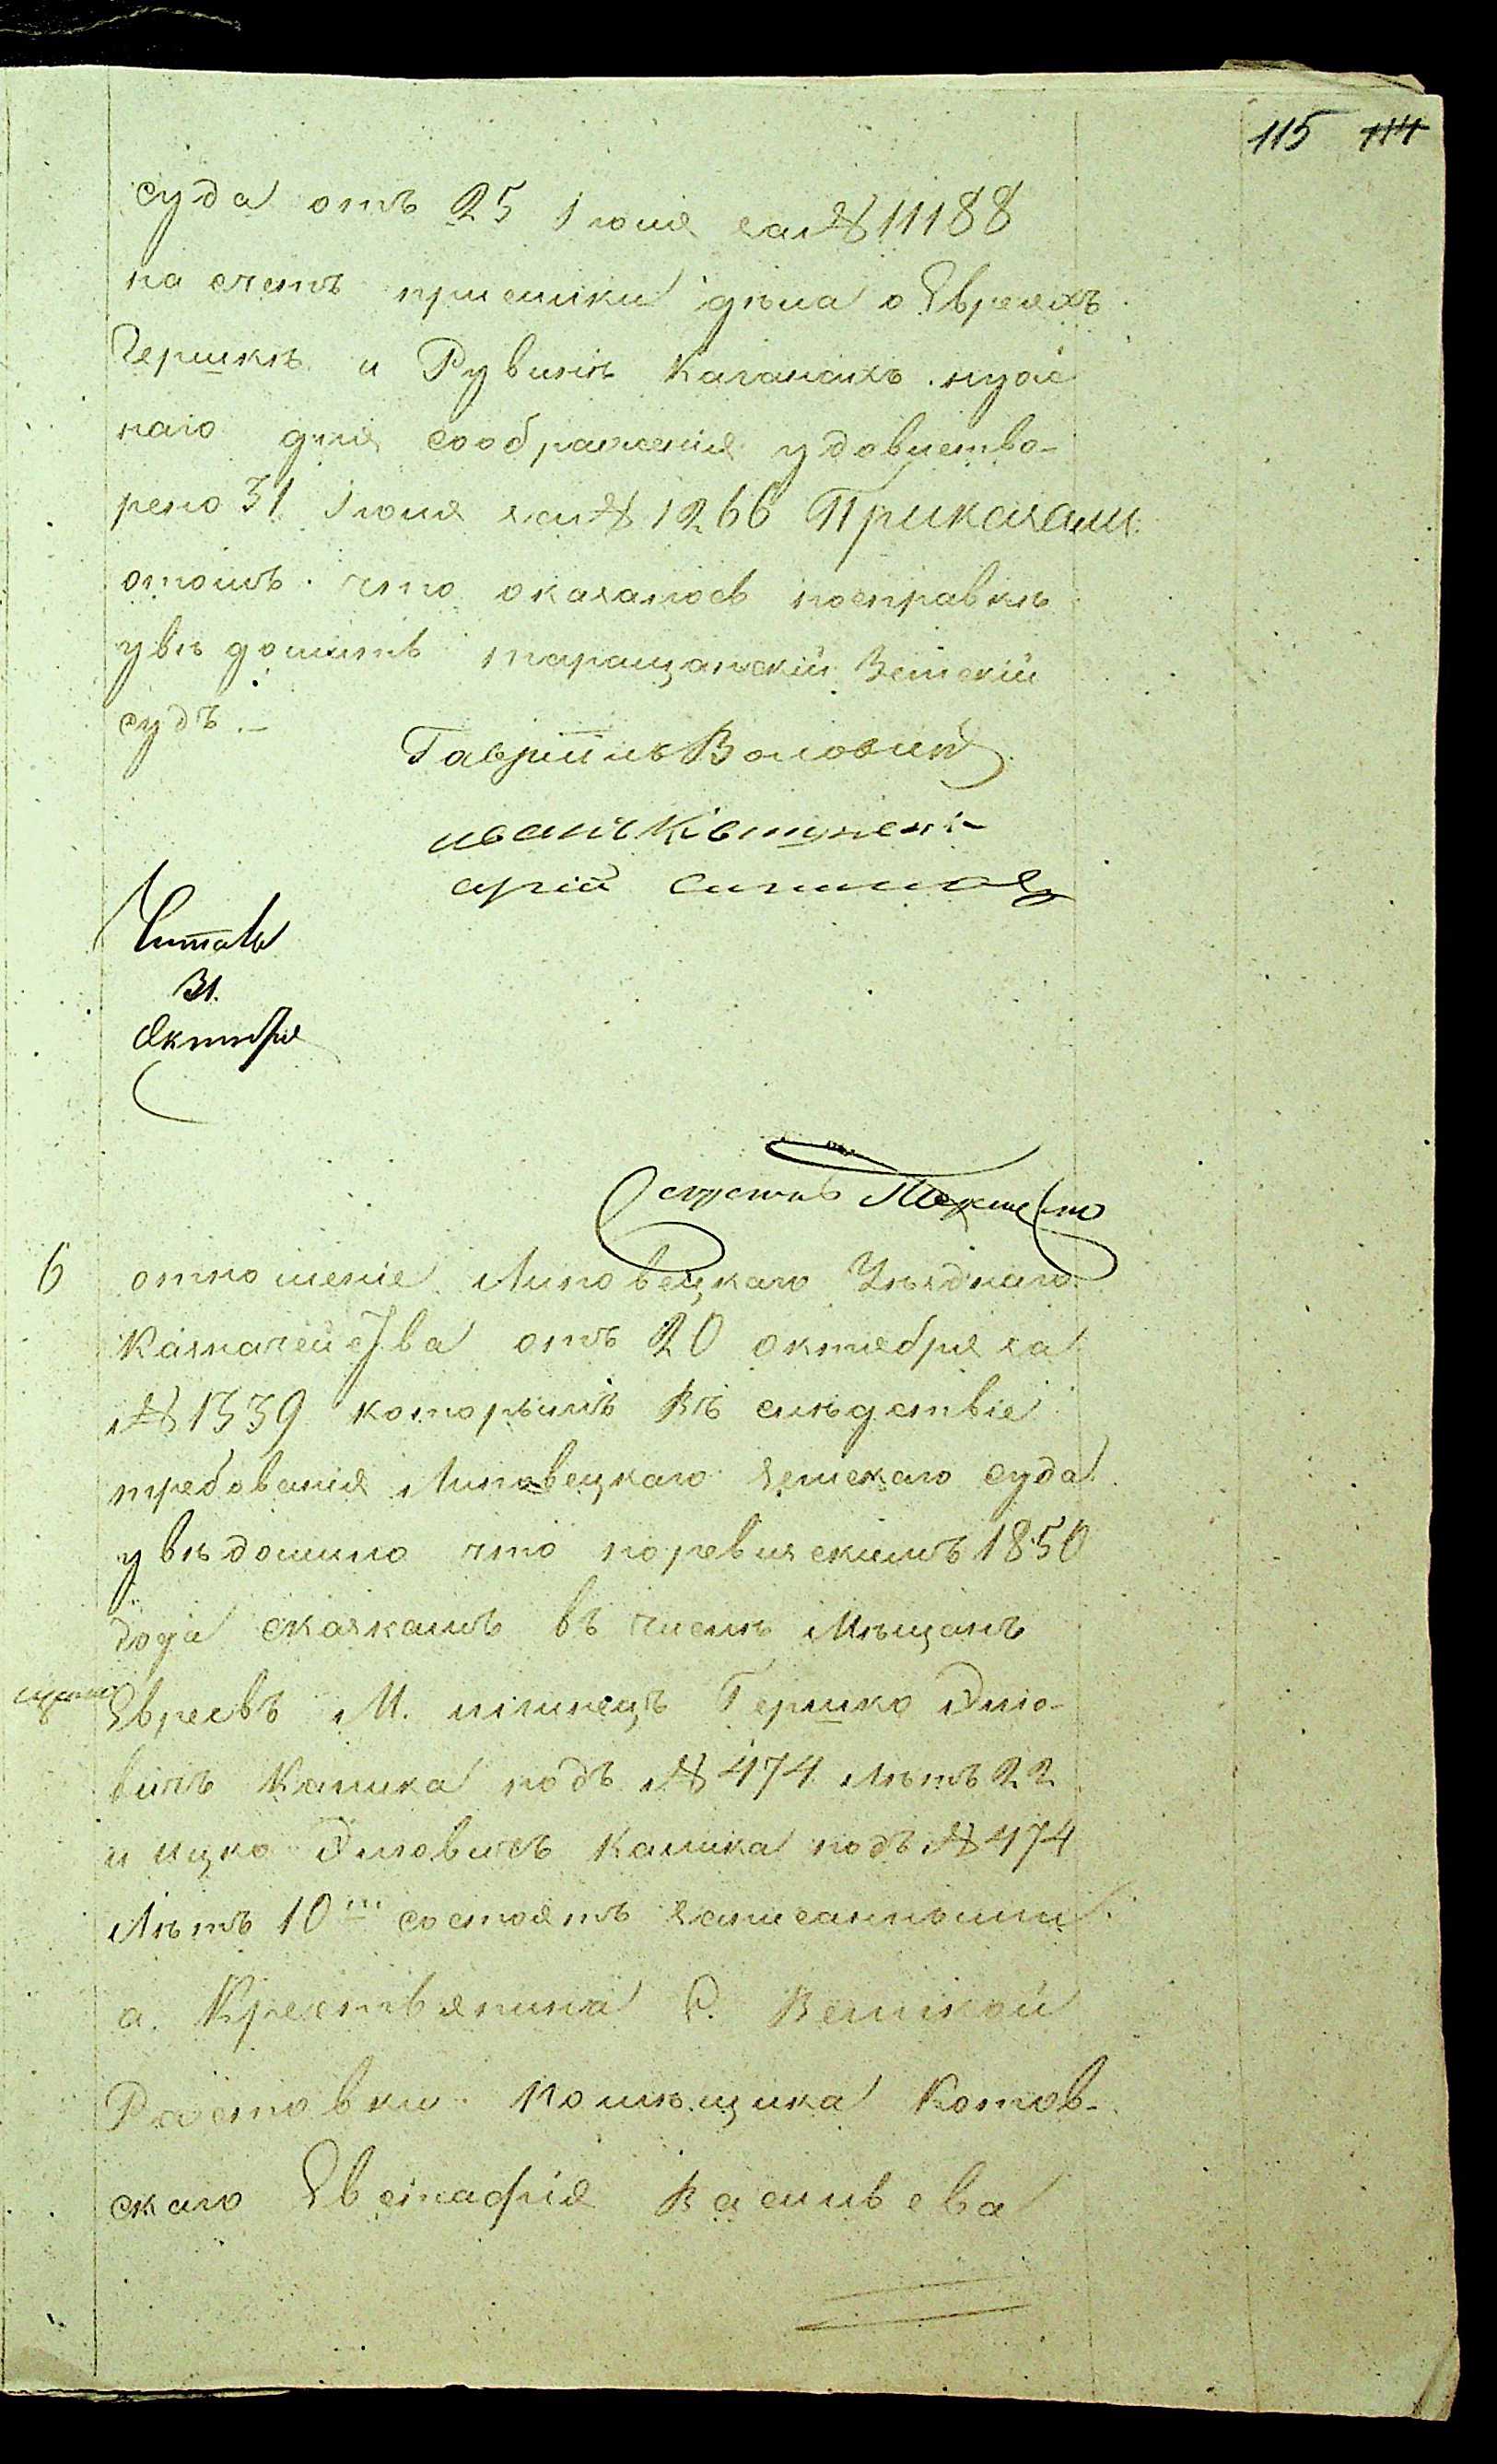 115 114
суда отъ 25 Іюня за № 11188
на счетъ присылки дѣла о Евреяхъ
Гершкѣ и Рувинѣ Каганахъ нуж
наго для соображенія удовлетво-
рено 31 Іюля за № 1266 Приказали
о томъ что оказалось по справкѣ
увѣдомить таращанскій Земскій
судъ.-
Гавріилъ
Иванъ
Читалъ
31.
Октября
6 отношеніе Липовецкаго Уѣзднаго
Казначейства отъ 20 октября за
№ 1339 которымъ въ слѣдствіе
требованія Липовецкаго земскаго суда
увѣдомило что по ревизскимъ 1850
года сказкамъ въ числѣ Мѣщанъ
Евреевъ М. Гершко Эліо-
вичъ Калика подъ № 474 лѣтъ 22
и Ицко Эліовичъ Калика подъ № 474
лѣтъ 10ти состоятъ записанными.
а. Крестьянина С. Великой
Растовки помѣщика Котов-
скаго Евстафія Васильева